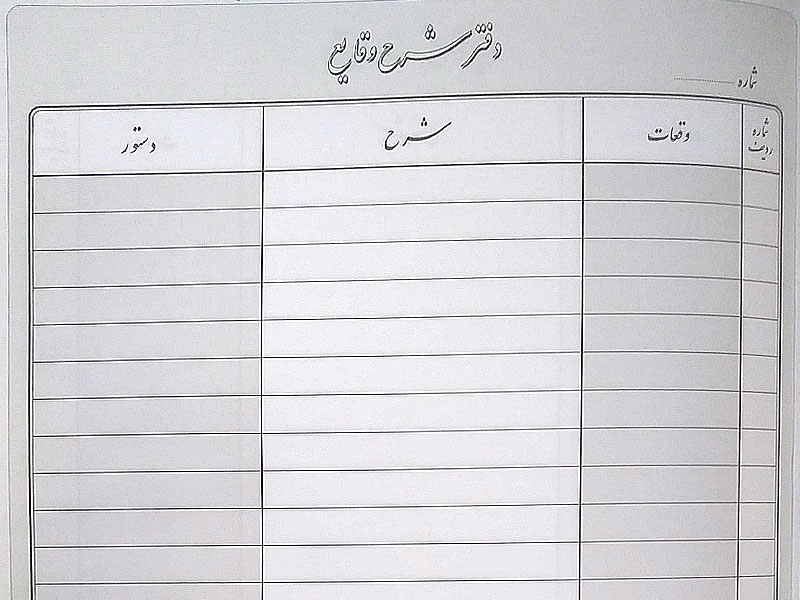 دفتر شرح وقایع
شماره
شماره ردیف
وقعات
شرح
دستور